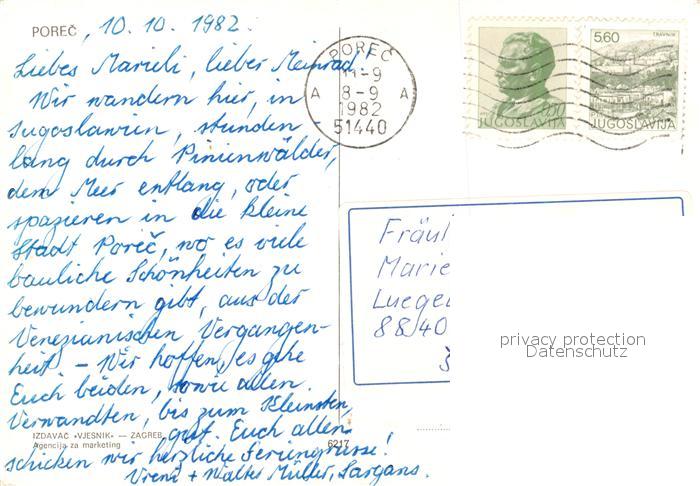 POREČ, 10. 10. 1982.
Liebes Marieli, lieber Meinrad!
Wir wandern hier, in
Jugoslawien, stunden-
lang durch Pinienwälder,
dem Meer entlang, oder
spazieren in die kleine
Stadt Poreč, wo es viele
bauliche Schönheiten zu
bewundern gibt, aus der
Venezianischen Vergangen-
heit. – Wir hoffen, es gehe
Euch beiden, sowie allen
Verwandten, bis zum Kleinsten,
gut. Euch allen
schicken wir herzliche Feriengrüsse!
Vreni + Walter Müller, Sargans.
IZDAVAČ »VJESNIK« — ZAGREB
Agencija za marketing
6217
POREČ
11-9
A 8-9 A
1982
51440
3,50
JUGOSLAVIJA
5.60 TRAVNIK
JUGOSLAVIJA
Fräul
Marie
Luege
8840
privacy protection
Datenschutz